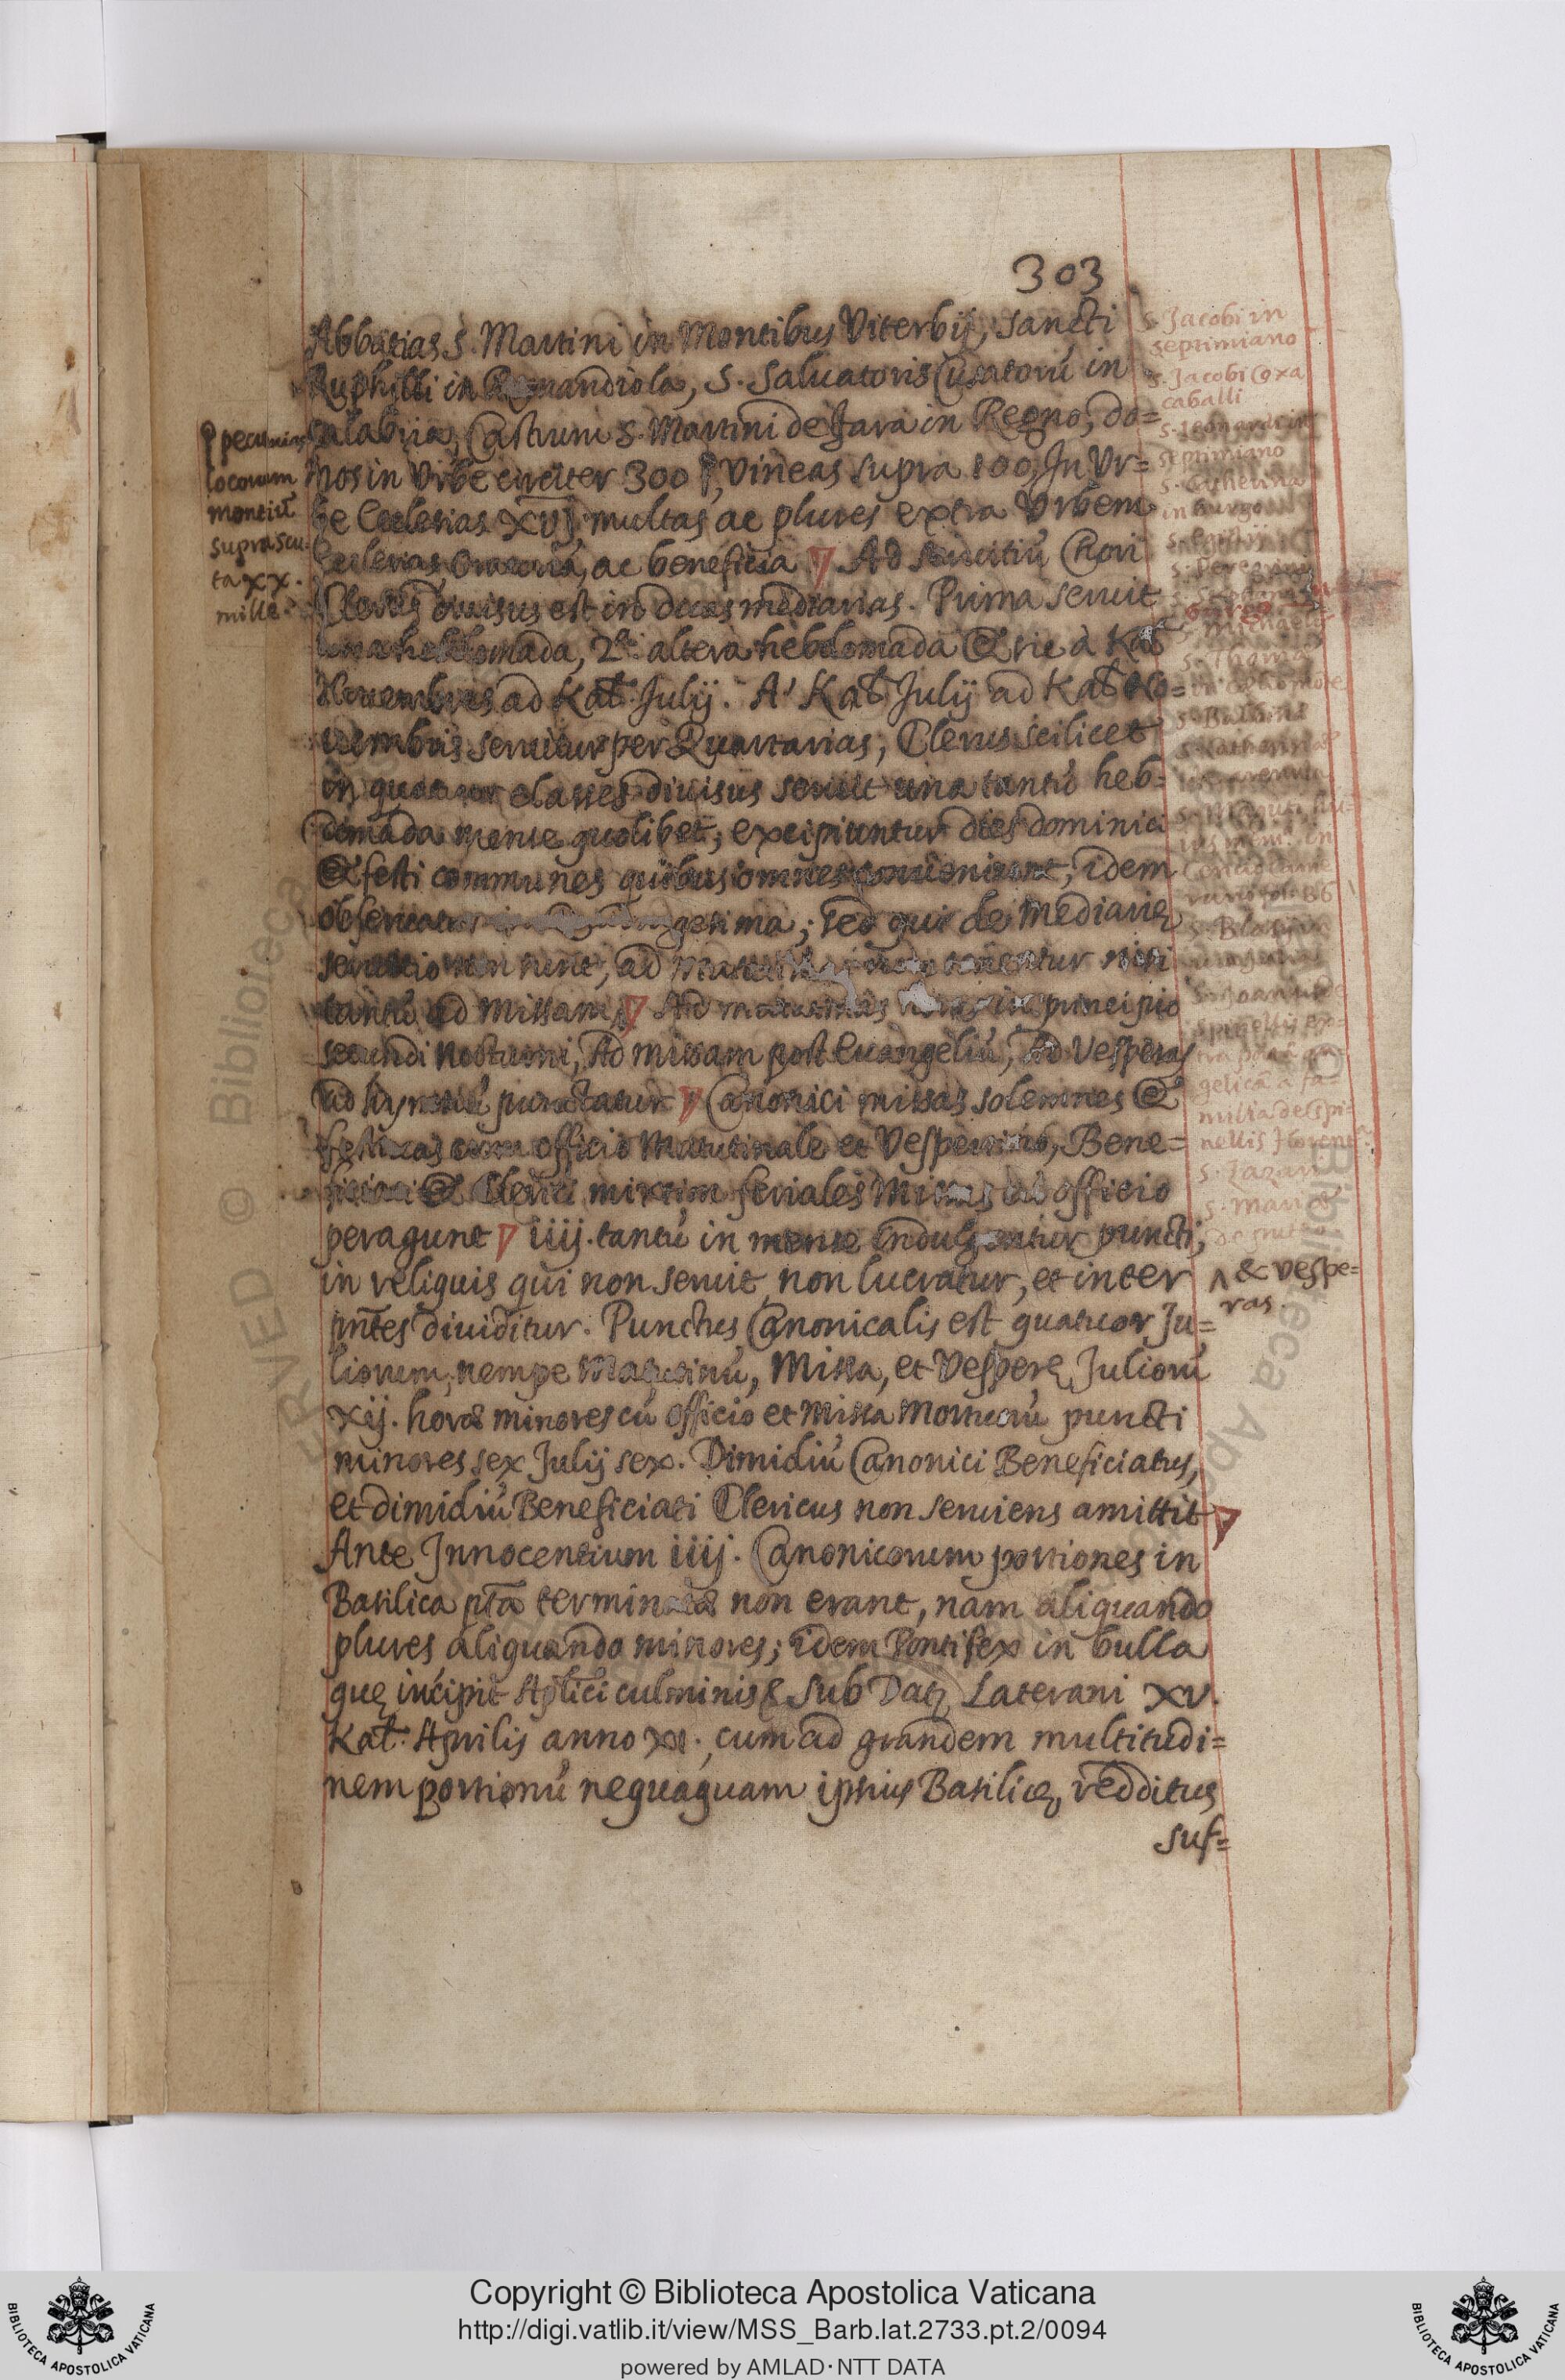 303
Abbatias S. Martini in Montibus Viterbij, sancti
Ruphilli in Romandiola, S. Saluatoris Curatorũ in
Calabria, Castrum S. Martini de Fara in Regno, do=
mos in Vrbe circiter 300, Vineas supra 100, In Vr=
be Ecclesias XVJ. multas ac plures extra Vrbem
Ecclesias, ac beneficia Ad seruitiũ Chori
Clerus diuisus est in duas medianas. Prima seruit
una hebdomada, 2.a altera hebdomada & sic à Kal̃
Nouembris ad Kal̃. Julij. A' Kal̃ Julij ad Kal̃ No=
uembris seruitur per Quartarias, Clerus scilicet
in quatuor classes diuisus seruit una tantũ heb=
domada mense quolibet, excipiuntur dies dominici
& festi communes quibus omnes conueniunt, idem
obseruatur gesima; sed qui de medianę
seruitio non sunt, ad nisi
tantũ ad Missam Ad matutinas in principio
secundi nocturni, Ad missam post Euangeliũ, Ad Vesperas
ad hymnũ punctatur Canonici missas solemnes &
festiuas cum officio Matutinale et Vesperino, Bene=
ficiati & Clerici mixtim feriales Missas officio
peragunt iiij. tantũ in mense indulgentur puncti,
in reliquis qui non seruit non lucratur, et inter
pñtes diuiditur. Punctus Canonicalis est quatuor Ju=
liorum, nempe Matutinũ, Missa, et Vesperę Juliorũ
xij. horæ minores cũ officio et Missa Mortuorũ puncti
minores sex Julij sex. Dimidiũ Canonici Beneficiatus,
et dimidiũ Beneficiati Clericus non seruiens amittit
Ante Innocentium iiij. Canonicorum portiones in
Basilica p̃ta terminatæ non erant, nam aliquando
plures aliquando minores; idem Pontifex in bulla
quę incipit Ap̃lici culminis sub Datę Laterani XV.
Kal̃. Aprilis anno XI., cum ad grandem multitudi=
nem portionũ nequaquam ipsius Basilicę redditus
suf=
pecunias
locorum
montiũ
supra scu
ta XX.
mille.
S. Jacobi in
septimiano
S. Jacobi Coxa
caballi
S. Leonardi in
septimiano
S. Catherina
in burgo
S. Michaelis
S. Thoma
S. Balbina
S. Katherina
S. Blasij
gelicã a fa=
milia de spi=
nellis
S. Lazari
S. Maria
& vespe=
ras
Copyright © Biblioteca Apostolica Vaticana
http://digi.vatlib.it/view/MSS_Barb.lat.2733.pt.2/0094
powered by AMLAD·NTT DATA
BIBLIOTECA APOSTOLICA VATICANA
BIBLIOTECA APOSTOLICA VATICANA